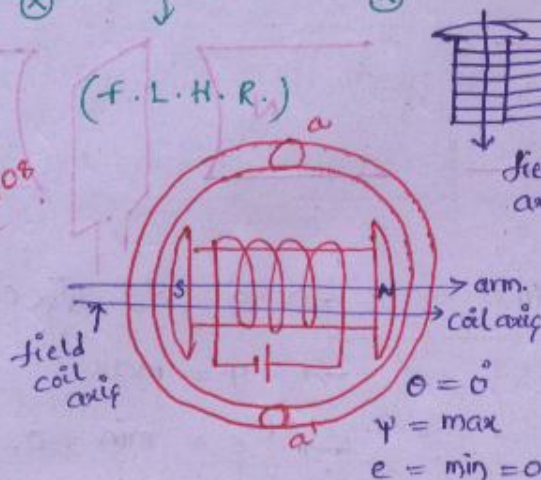 (F.L.H.R.)
a
fie
ax
S
N
arm.
coil axis
field
coil
axis
θ = 0°
Ψ = max
e = min = 0
a'